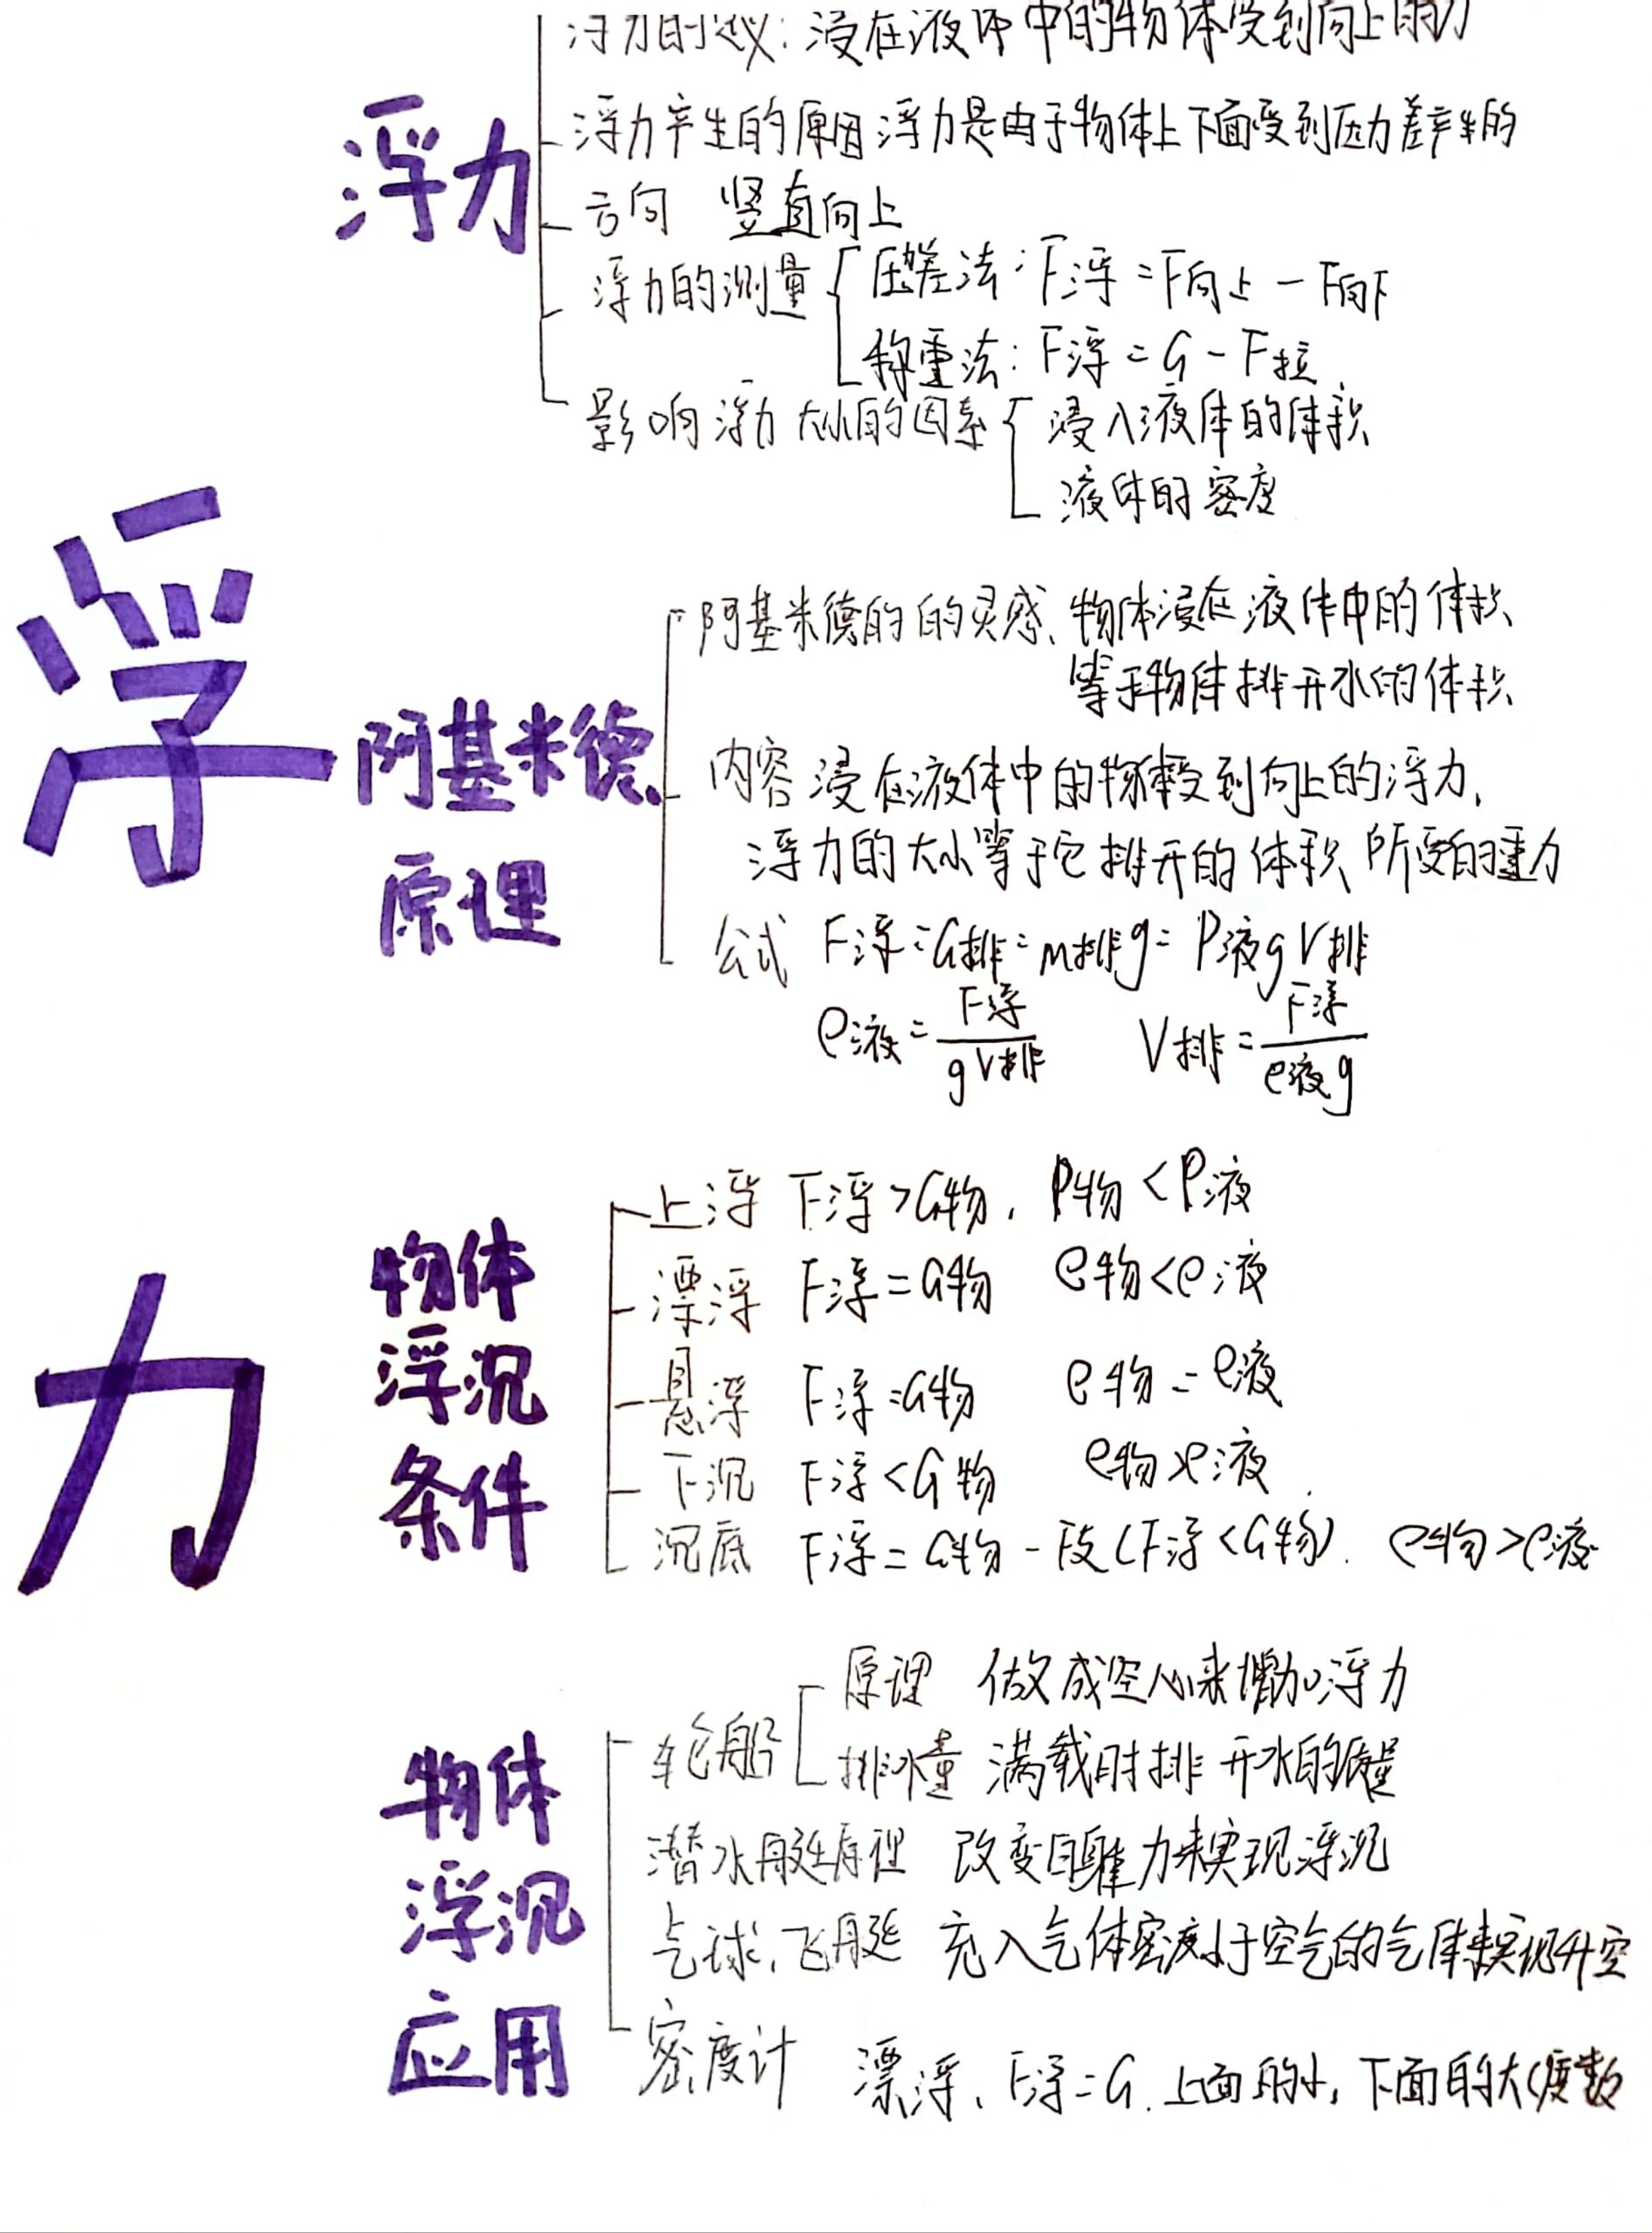 浮力
浮力的定义:浸在液体中的物体受到向上的力
浮力产生的原因 浮力是由于物体上下面受到压力差产生的
方向 竖直向上
浮力的测量
压差法:F浮=F向上-F向下
称重法:F浮=G-F拉
影响浮力大小的因素
浸入液体的体积
液体的密度
阿基米德
原理
阿基米德的的灵感、物体浸在液体中的体积
等于物体排开水的体积
内容 浸在液体中的物体受到向上的浮力,
浮力的大小等于它排开的体积所受的重力
公式 F浮=G排=m排g=ρ液gV排
ρ液=F浮/gV排 V排=F浮/ρ液g
浮
力
物体
浮沉
条件
上浮 F浮>G物, ρ物<ρ液
漂浮 F浮=G物 ρ物<ρ液
悬浮 F浮=G物 ρ物=ρ液
下沉 F浮<G物 ρ物>ρ液
沉底 F浮=G物-F支(F浮<G物). ρ物>ρ液
物体
浮沉
应用
轮船
原理 做成空心来增加浮力
排水量 满载时排开水的质量
潜水艇原理 改变自身重力来实现浮沉
气球,飞艇 充入气体密度小于空气的气体来实现升空
密度计 漂浮、F浮=G.上面的小,下面的大(度数